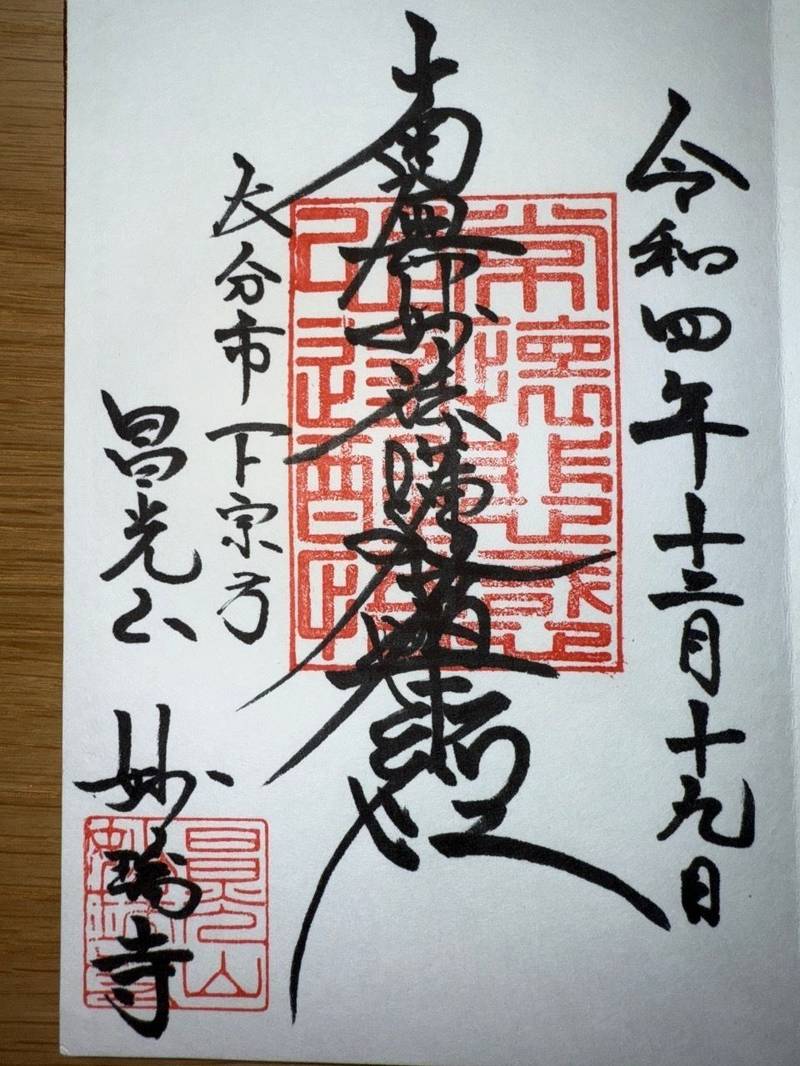 令和四年十二月十九日
南無妙法蓮華経
常懐悲感
心遂醒悟
大分市下宗方
昌光山 妙瑞寺
昌光山
妙瑞寺